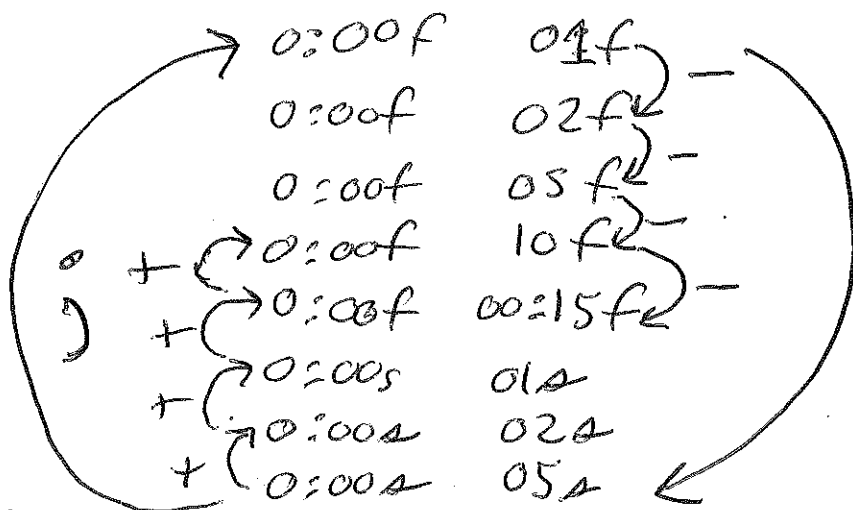 0:00f 01f -
0:00f 02f -
0:00f 05f -
+ 0:00f 10f -
; + 0:00f 00:15f
+ 0:00s 01s
+ 0:00s 02s
0:00s 05s